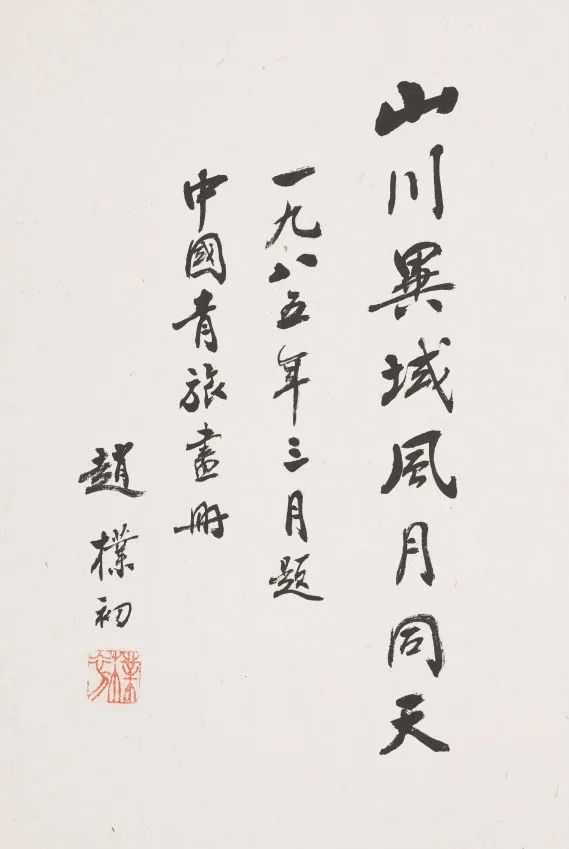 山川異域風月同天
一九八五年三月題
中國青旅畫冊
趙樸初
樸初